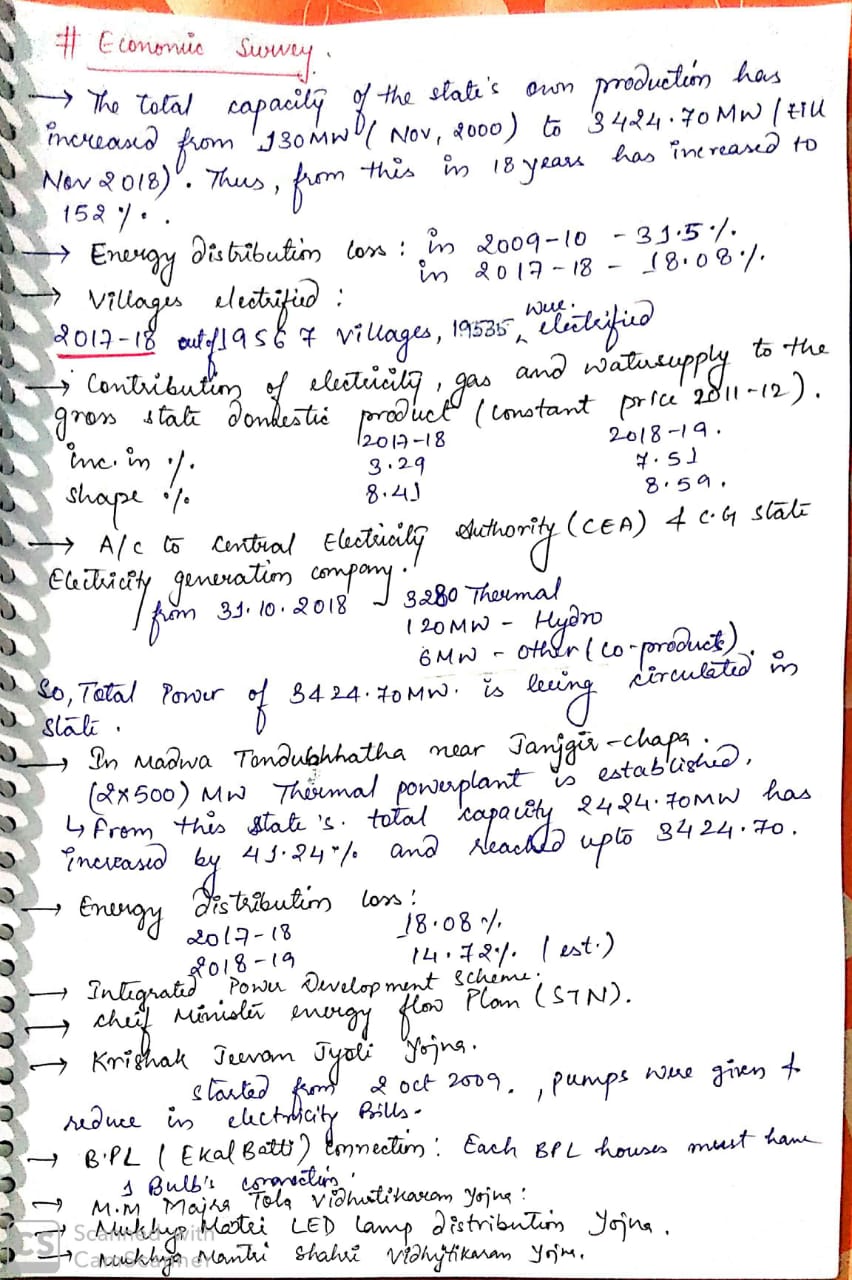 # Economic Survey.
→ The total capacity of the state's own production has
increased from 130MW (Nov, 2000) to 3424.70MW (till
Nov 2018). Thus, from this in 18 years has increased to
152%.
→ Energy distribution loss : in 2009-10 - 31.5%.
in 2017-18 - 18.08%.
→ Villages electrified :
2017-18 out of 19567 villages, 19535 were electrified
→ Contribution of electricity, gas and watersupply to the
gross state domestic product (constant price 2011-12).
2017-18 2018-19.
inc. in % 3.29 7.51
shape % 8.41 8.59.
→ A/c to Central Electricity Authority (CEA) & C.G state
Electricity generation company.
from 31.10.2018 3280 Thermal
120MW - Hydro
6MW - other (co-product).
So, Total Power of 3424.70MW. is being circulated in
state.
→ In Madwa Tendubhhatha near Janjgir-chapa.
(2x500) MW Thermal powerplant is established.
↳ From this state's. total capacity 2424.70MW has
increased by 41.24% and reached upto 3424.70.
→ Energy distribution loss :
2017-18 18.08%
2018-19 14.72% (est.)
→ Integrated Power Development Scheme.
→ cheif Minister energy flow Plan (STN).
→ Krishak Jeevan Jyoti Yojna.
started from 2 oct 2009. , pumps were given &
reduce in electricity Bills.
→ B.PL (Ekal Batti) Connection : Each BPL houses must have
1 Bulb's connection.
→ M.M Majra Tola Vidhutikaran Yojna :
→ Mukhya Mantri LED lamp distribution Yojna.
→ Mukhya Mantri Shahri Vidhytikaran Yojn.
CS Scanned with
CamScanner